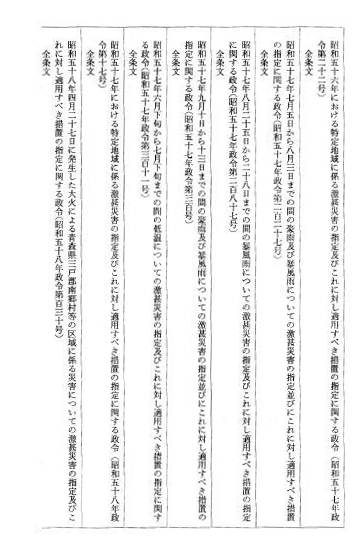 昭和五十六年における特定地域に係る激甚災害の指定及びこれに対し適用すべき措置の指定に関する政令(昭和五十七年政
令第二十二号)
全条文
昭和五十七年七月五日から八月三日までの間の豪雨及び暴風雨についての激甚災害の指定並びにこれに対し適用すべき措置
の指定に関する政令(昭和五十七年政令第二百二十七号)
全条文
昭和五十七年八月二十五日から二十八日までの間の暴風雨についての激甚災害の指定及びこれに対し適用すべき措置の指定
に関する政令(昭和五十七年政令第二百八十七号)
全条文
昭和五十七年九月十日から十三日までの間の豪雨及び暴風雨についての激甚災害の指定並びにこれに対し適用すべき措置の
指定に関する政令(昭和五十七年政令第三百号)
全条文
昭和五十七年六月下旬から七月下旬までの間の低温についての激甚災害の指定及びこれに対し適用すべき措置の指定に関す
る政令(昭和五十七年政令第三百十一号)
全条文
昭和五十七年における特定地域に係る激甚災害の指定及びこれに対し適用すべき措置の指定に関する政令(昭和五十八年政
令第十七号)
全条文
昭和五十八年四月二十七日に発生した大火による青森県三戸郡南郷村等の区域に係る災害についての激甚災害の指定及びこ
れに対し適用すべき措置の指定に関する政令(昭和五十八年政令第百三十号)
全条文